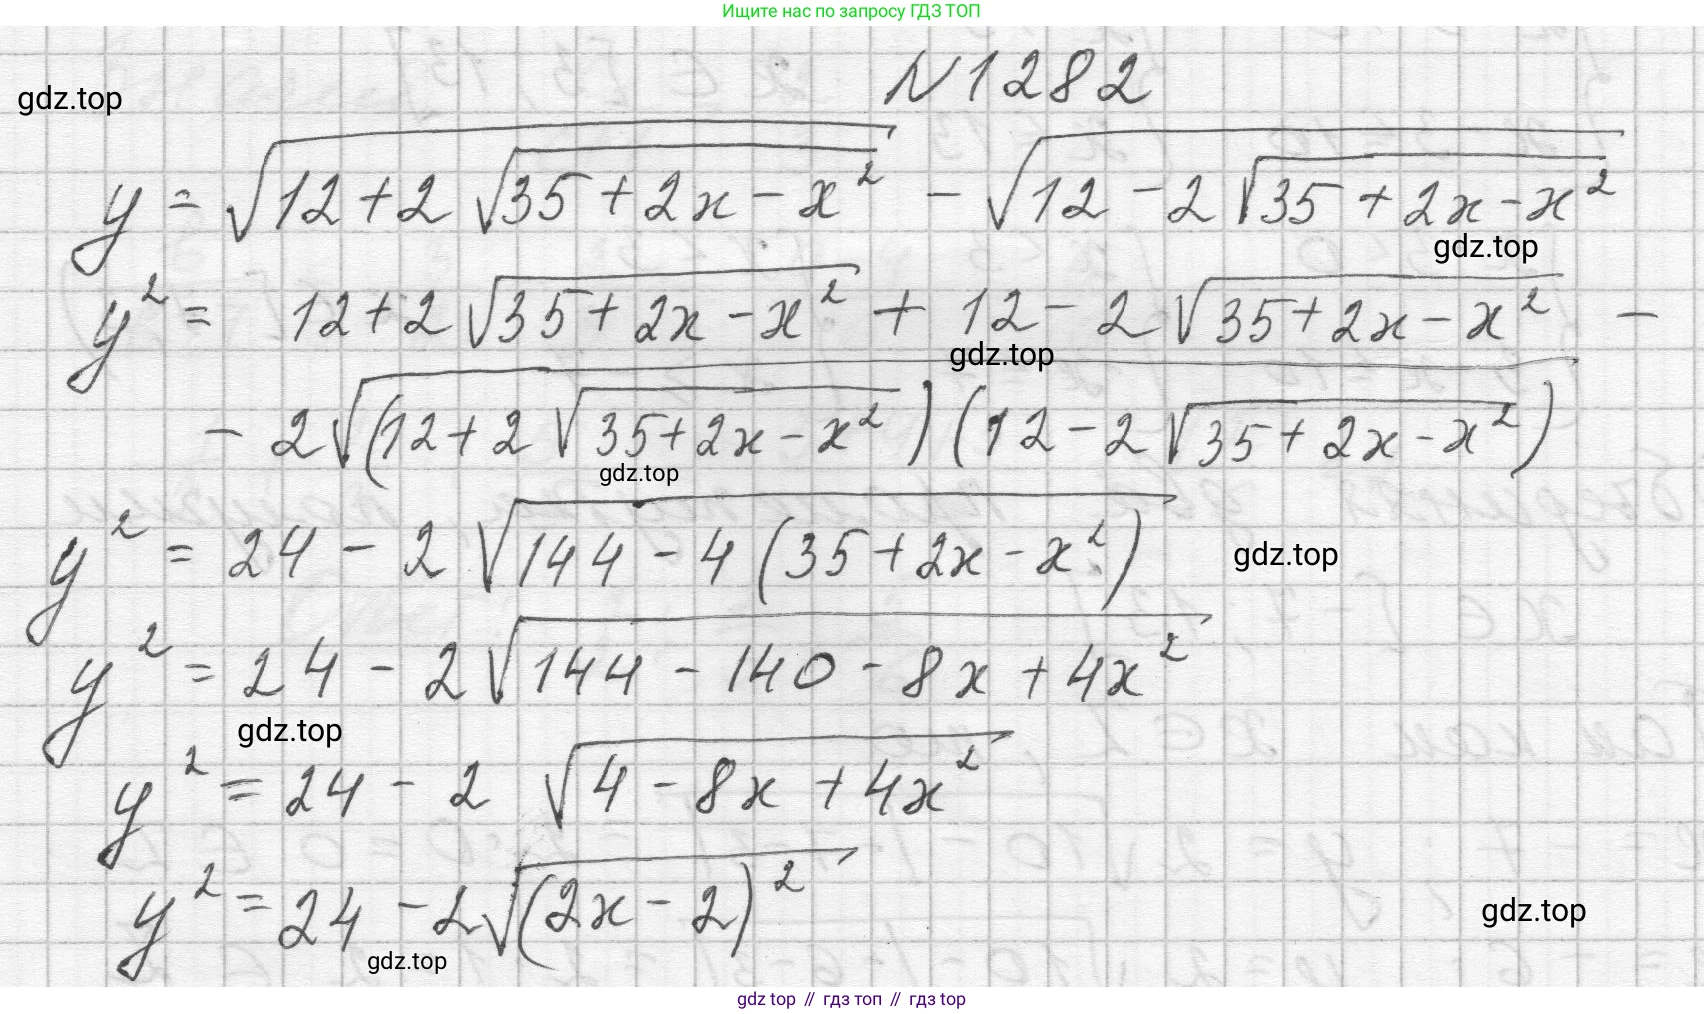 Ищите нас по запросу ГДЗ ТОП
N1282
gdz.top
y = √(12 + 2√(35 + 2x - x²)) - √(12 - 2√(35 + 2x - x²))
gdz.top
y² = 12 + 2√(35 + 2x - x²) + 12 - 2√(35 + 2x - x²) -
gdz.top
- 2√((12 + 2√(35 + 2x - x²))(12 - 2√(35 + 2x - x²)))
gdz.top
y² = 24 - 2√(144 - 4(35 + 2x - x²))
gdz.top
y² = 24 - 2√(144 - 140 - 8x + 4x²)
gdz.top
y² = 24 - 2√(4 - 8x + 4x²)
y² = 24 - 2√((2x - 2)²)
gdz.top
gdz.top
gdz top // гдз топ // гдз top